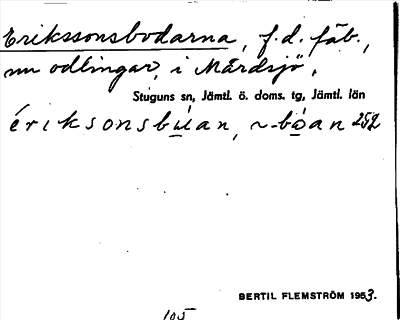 Erikssonsbodarna, f.d. fäb.,
nu odlingar, i Mårdsjö.
Stuguns sn, Jämtl. ö. doms. tg, Jämtl. län
ériksonsbu̲an, ~-bo̲an 252
BERTIL FLEMSTRÖM 1953.
105